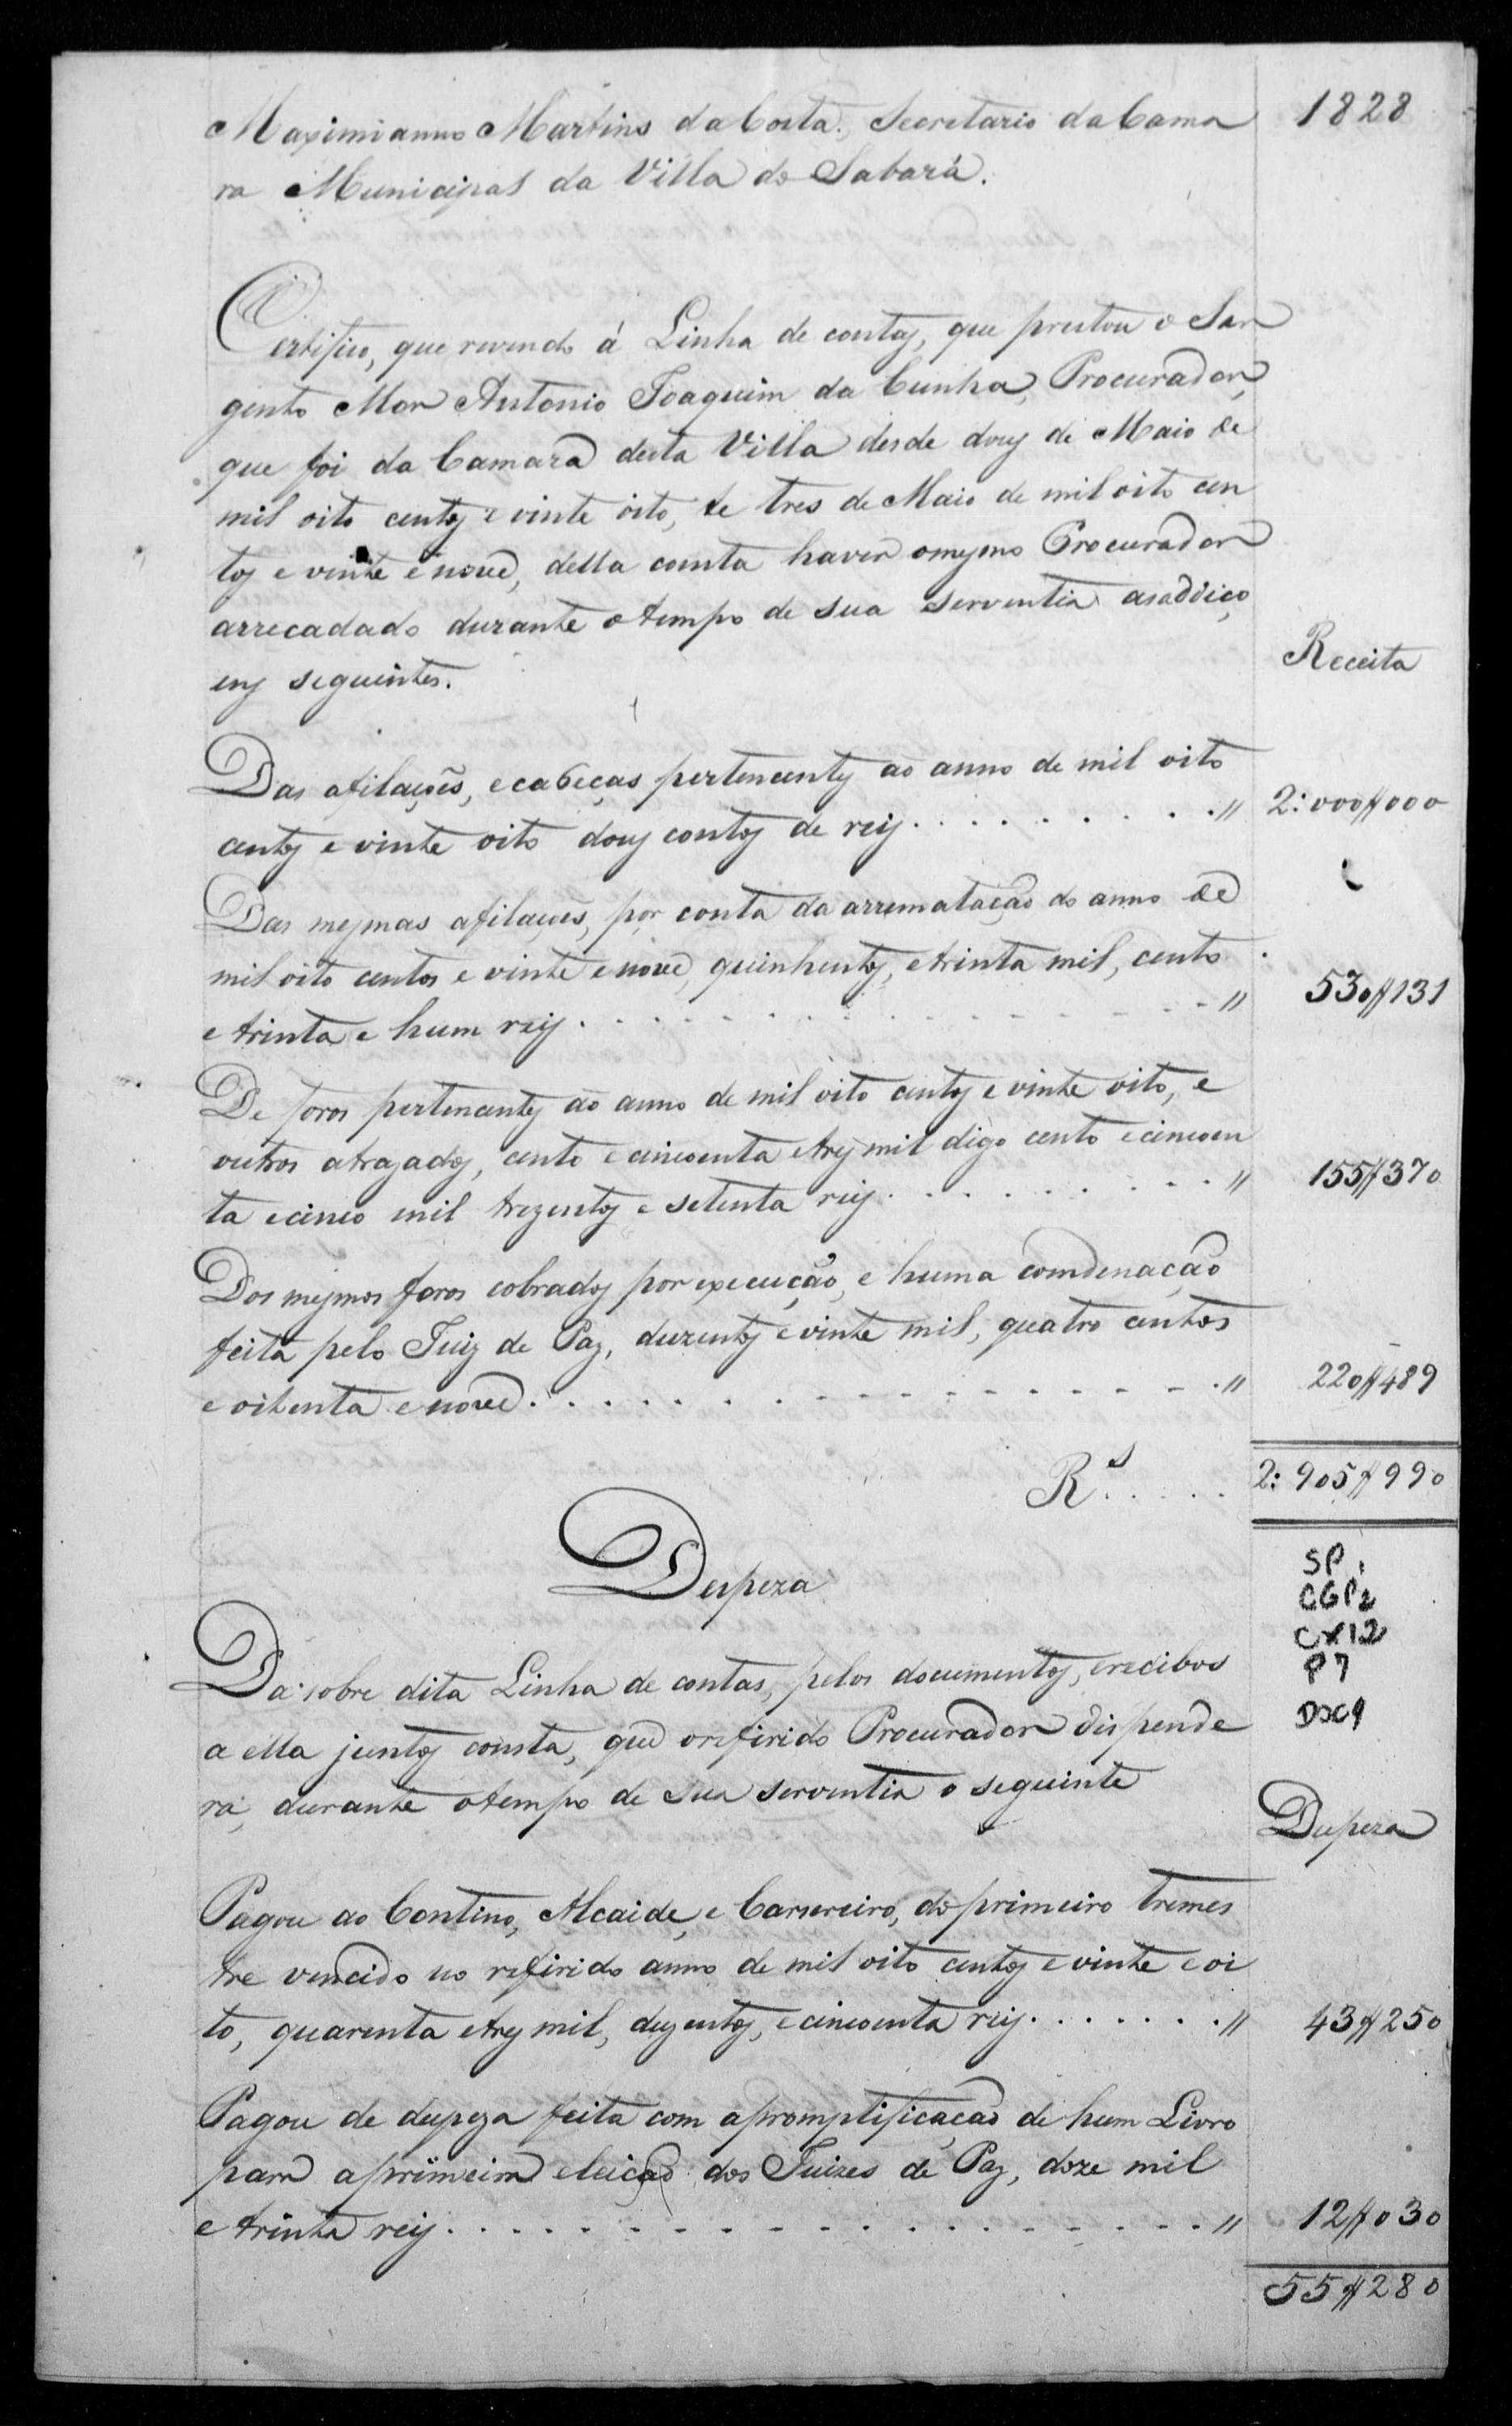 Maximianno Martins da Costa, Secretario da Cama 1828
ra Municipal da Villa do Sabará.
Certifico, que revendo á Linha de contas, que prestou o Sar
gento Mor Antonio Joaquim da Cunha, Procurador,
que foi da Camara desta Villa desde dous de Maio de
mil oito centos e vinte oito, te tres de Maio de mil oito cen
tos e vinte e nove, della consta haver o mesmo Procurador
arrecadado durante o tempo de sua serventia as addiço
ens seguintes.
Receita
Das afilações, e cabeças pertencentes ao anno de mil oito
centos e vinte oito dous contos de reis . . . . . . . . . . " 2:000$000
Das mesmas afilações, por conta da arrematação do anno de
mil oito centos e vinte e nove, quinhentos, e trinta mil, cento
e trinta e hum reis . . . . . . . . . . . . . . . " 530$131
De foros pertencentes ao anno de mil oito centos e vinte oito, e
outros atrazados, cento e cincoenta e tres mil digo cento e cincoen
ta e cinco mil trezentos e setenta reis . . . . . . . . . . " 155$370
Dos mesmos foros cobrados por execução, e huma comdenação
feita pelo Juiz de Paz, duzentos e vinte mil, quatro centos
e oitenta e nove . . . . . . . . . . . . . . . . " 220$489
Rs. . . . . 2:905$990
Despeza
SP.
CGP2
CX12
P7
DOC9
Da sobre dita Linha de contas, pelos documentos, e recibos
a ella juntos consta, que o referido Procurador dispende
ra, durante o tempo de sua serventia o seguinte
Despeza
Pagou ao Contino, Alcaide, e Carsereiro, do primeiro tremes
tre vencido no referido anno de mil oito centos e vinte e oi
to, quarenta e tres mil, duzentos, e cincoenta reis . . . . . . . " 43$250
Pagou de despeza feita com apromptificação de hum Livro
para a primeira eleição dos Juizes de Paz, doze mil
e trinta reis . . . . . . . . . . . . . . . . . . . " 12$030
55$280